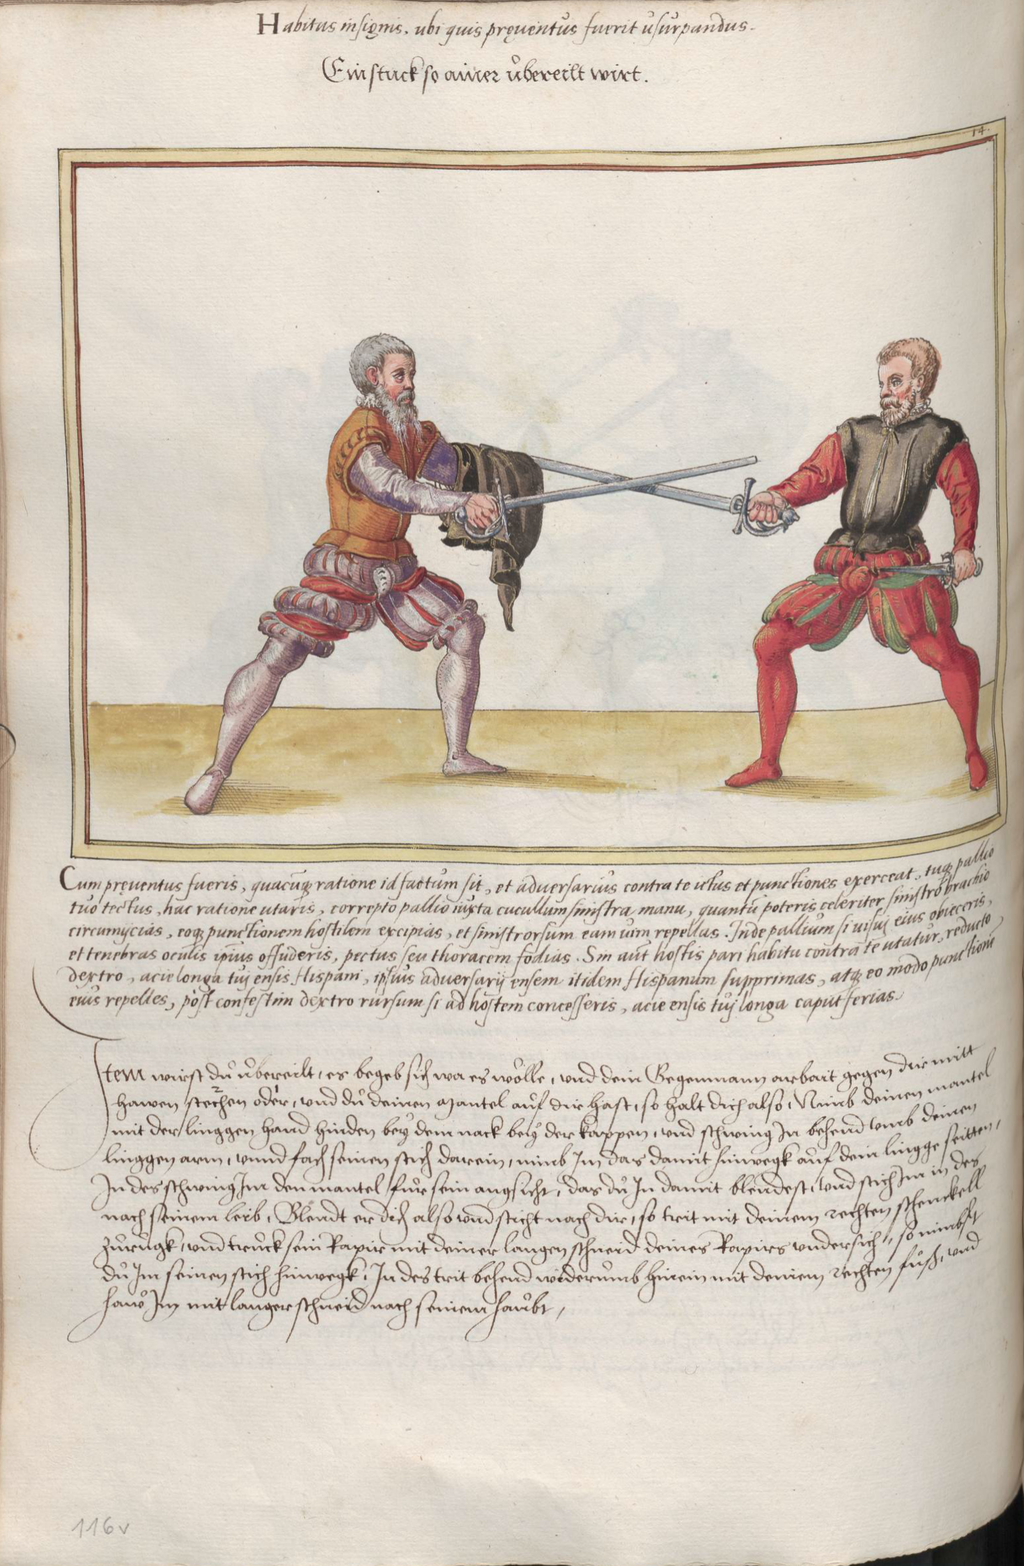 Habitus insignis, ubi quis pręuentus fuerit usurpandus.
Ein stuck so ainer übereilt wirt.
14.
Cum pręuentus fueris, quacūq ratione id factum sit, et aduersarius contra te ictus et punctiones exerceat, tuq pallio
tuo tectus, hac ratione utaris, correpto pallio iuxta cucullum sinistra manu, quantū poteris celeriter sinistro brachio
circumijcias, eoq punctionem hostilem excipias, et sinistrorsum eam uim repellas. Inde pallium si uisui eius obieceris,
et tenebras oculis ipius offuderis, pectus seu thoracem fodias. Sin aūt hostis pari habitu contra te utatur, reducto
dextro, acie longa tuj ensis Hispani, ipsius aduersarij ensem itidem Hispanum supprimas, atq eo modo punctionē
eius repelles, pòst confestim dextro rursum si ad hostem concesseris, acie ensis tuj longa caput ferias.
Item wirst du übereilt, es begeb sich wa es wölle, vnd dein Gegenmann arbait gegen dir mitt
hawen stechen oder, vnd du deinen mantel auf dir hast, so halt dich also, Nimb deinen mantel
mit der linggen hand hinden bey dem nack bey der kappen, vnd schwing In behend vmb deinen
linggen arm, vnnd fach seinen stich darein, nimb Im das damit hinwegk auf dein lingge seitten,
In des schwing Im den mantel für sein angsicht, das du In damit blendest, vnd stich Im in des
nach seinem leib, Blendt er dich also vnd sticht nach dir, so trit mit deinem rechten schenckell
zurugk, vnd truck sein Rapir mit deiner langen schneid deines Rapirs vndersich, so nimbst
du Im seinen stich hinwegk, In des trit behend widerumb hinein mit deinem rechten fuß, vnd
haw Im mit langer schneid nach seinem haubt,
116v